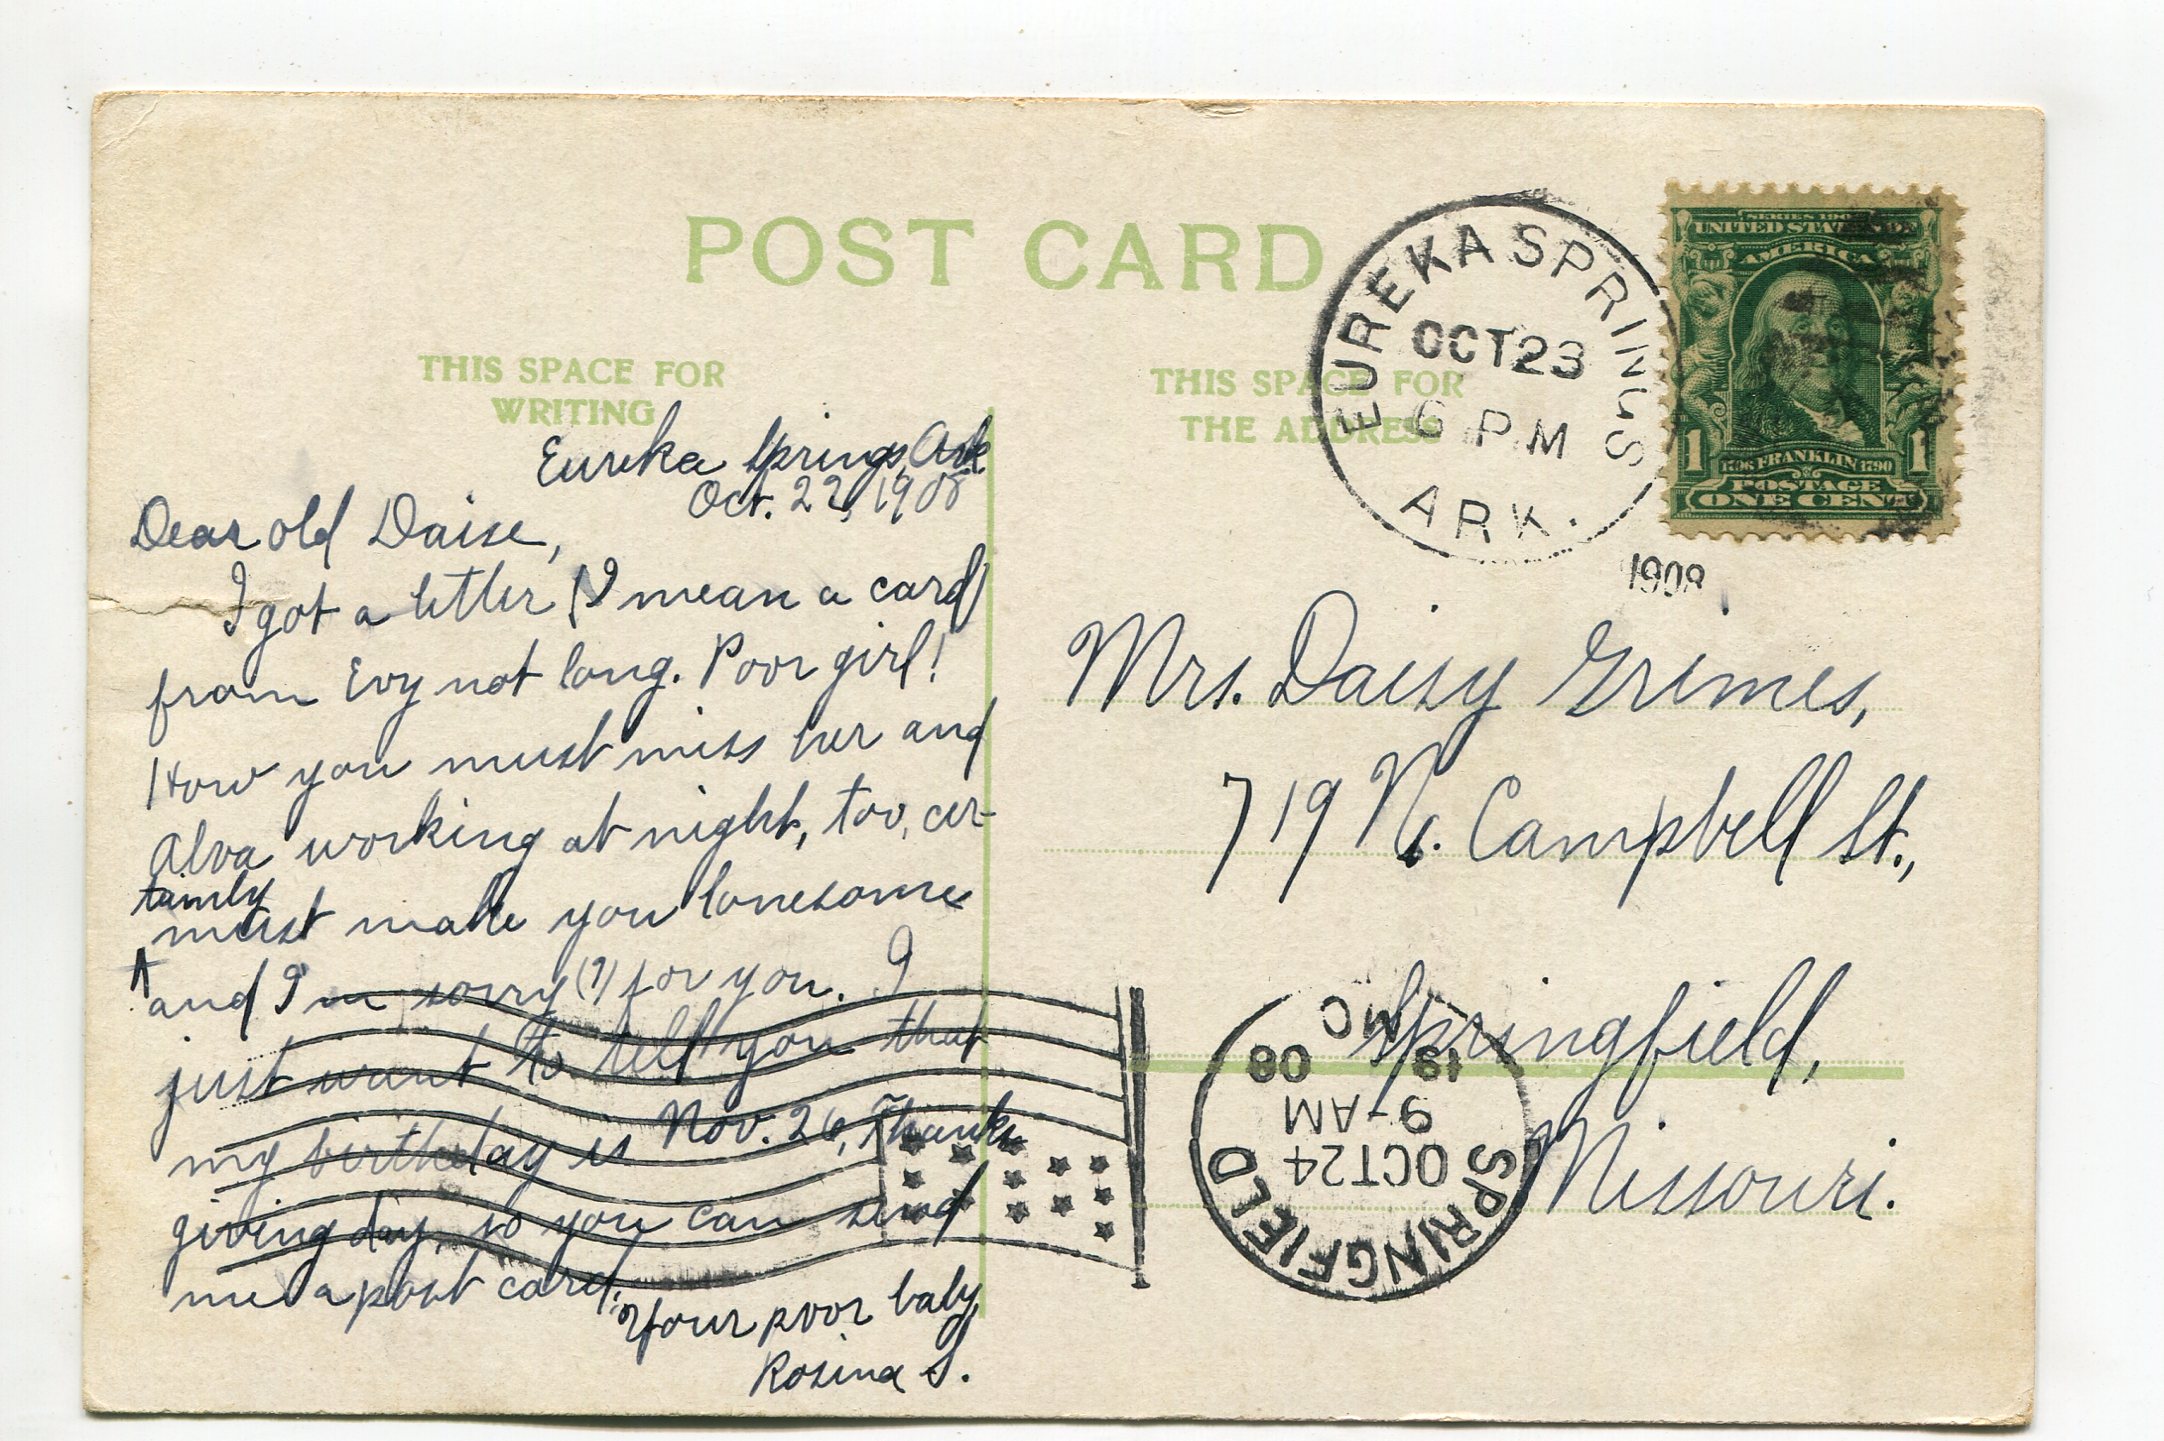 POST CARD
THIS SPACE FOR
WRITING
THIS SPACE FOR
THE ADDRESS
EUREKA SPRINGS
OCT 23
6 PM
ARK.
1908
UNITED STATES OF
AMERICA
1706 FRANKLIN 1790
1 POSTAGE 1
ONE CENT
Eureka Springs, Ark
Oct. 22, 1908
Dear old Daise,
I got a letter (I mean a card)
from Evy not long. Poor girl!
How you must miss her and
Alva working at night, too, cer-
tainly
must make you lonesome
and I'm sorry (?) for you. I
just want to tell you that
my birthday is Nov. 26, Thanks
giving day, so you can send
me a post card.
Your poor baby,
Rosina S.
Mrs. Daisy Grimes,
719 N. Campbell St.,
Springfield,
Missouri.
SPRINGFIELD
OCT 24
9-AM
19 08
MO